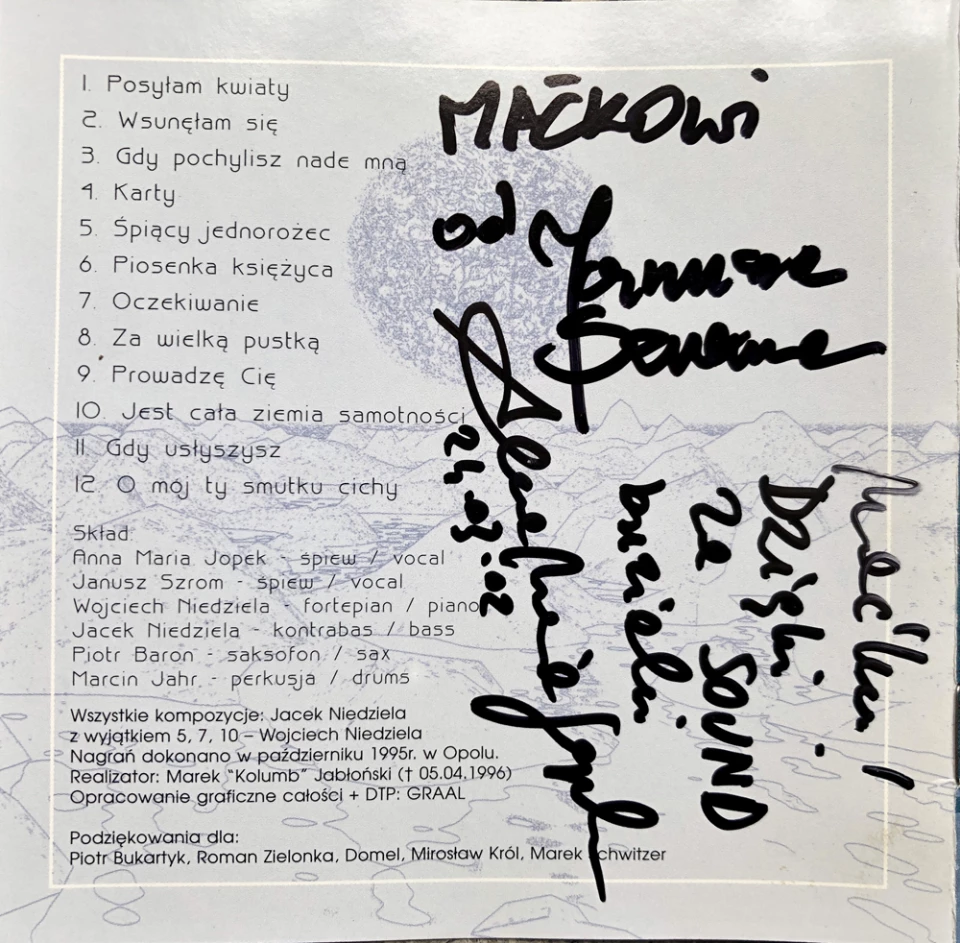 1. Posyłam kwiaty
2. Wsunęłam się
3. Gdy pochylisz nade mną
4. Karty
5. Śpiący jednorożec
6. Piosenka księżyca
7. Oczekiwanie
8. Za wielką pustką
9. Prowadzę Cię
10. Jest cała ziemia samotności
11. Gdy usłyszysz
12. O mój ty smutku cichy
Skład:
Anna Maria Jopek - śpiew / vocal
Janusz Szrom - śpiew / vocal
Wojciech Niedziela - fortepian / piano
Jacek Niedziela - kontrabas / bass
Piotr Baron - saksofon / sax
Marcin Jahr - perkusja / drums
Wszystkie kompozycje: Jacek Niedziela
z wyjątkiem 5, 7, 10 – Wojciech Niedziela
Nagrań dokonano w październiku 1995r. w Opolu.
Realizator: Marek "Kolumb" Jabłoński († 05.04.1996)
Opracowanie graficzne całości + DTP: GRAAL
Podziękowania dla:
Piotr Bukartyk, Roman Zielonka, Domel, Mirosław Król, Marek Schwitzer
MAĆKOWI
od
Janusza
Maćku!
Dzięki
za SOUND